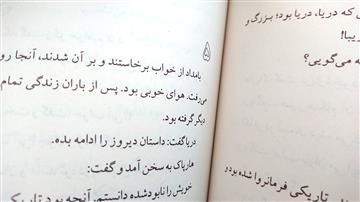 که دریا، دریا بود؛ بزرگ و
یبا!
ه می‌گویی؟
تاریکی فرمانروا شده بود و
۵
بامداد از خواب برخاستند و بر آن شدند، آنجا رو
می‌رفت. هوای خوبی بود. پس از باران زندگی تمام
دیگر گرفته بود.
دریا گفت: داستان دیروز را ادامه بده.
هارپاک به سخن آمد و گفت:
خویش را نابود شده دانستم. آنچه بود تاریک